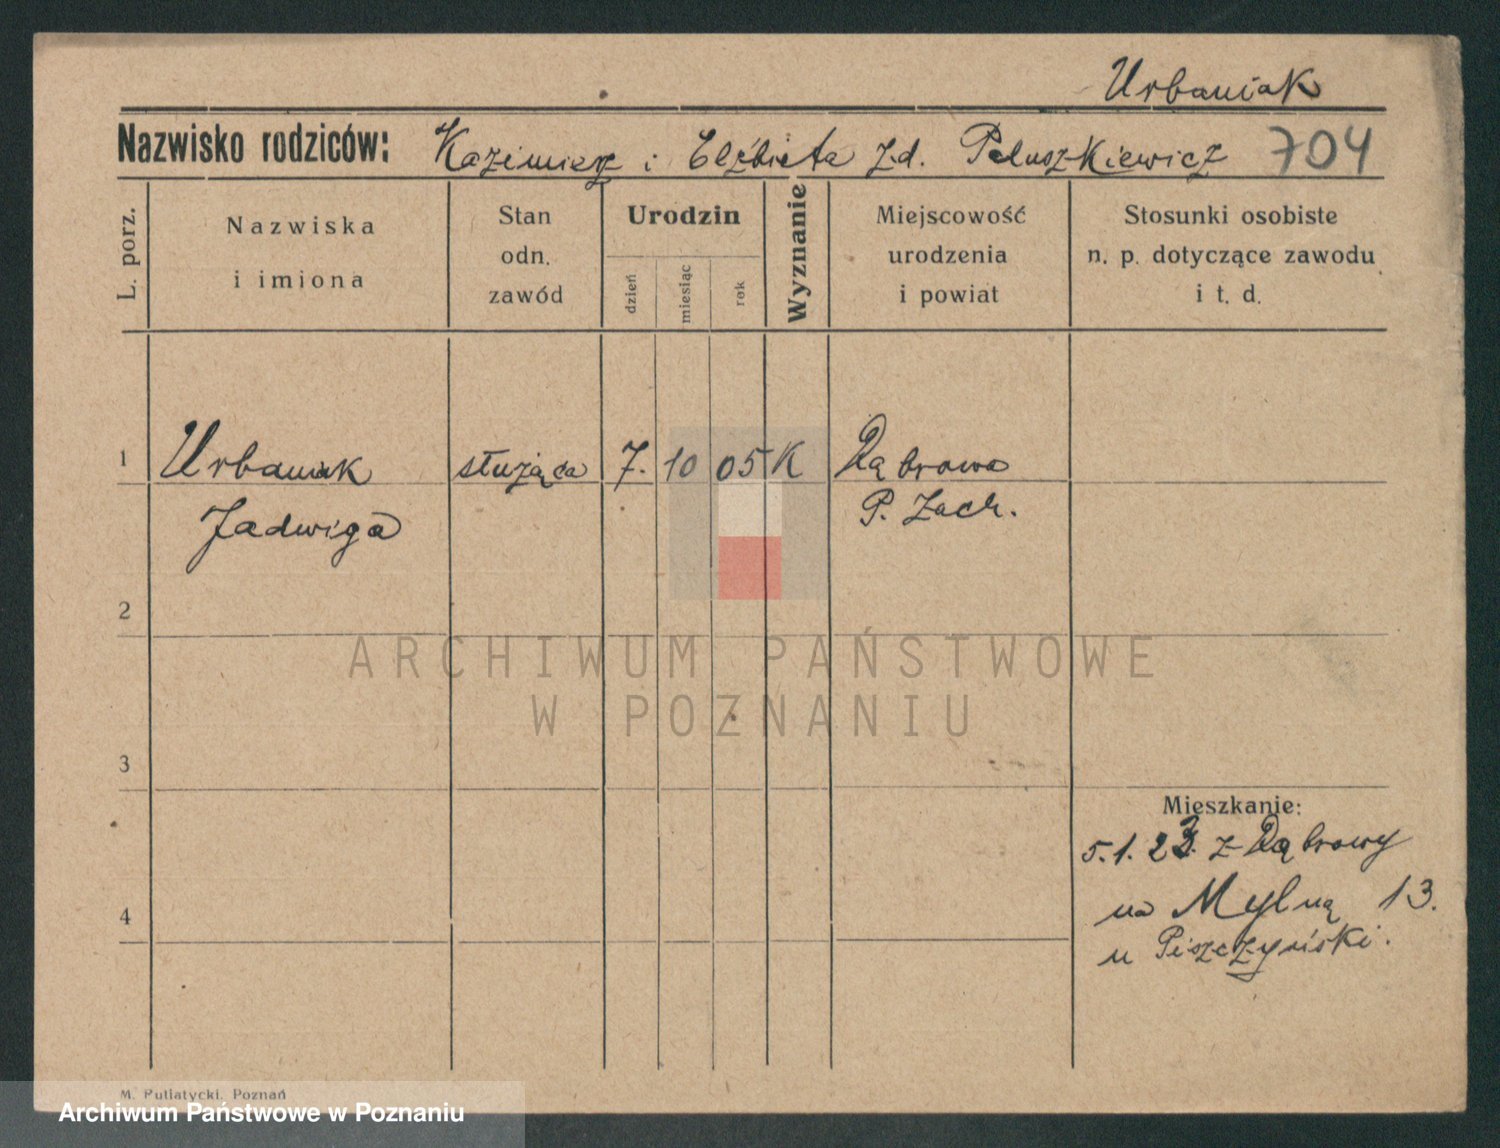 Urbaniak
Nazwisko rodziców: Kazimierz i Elżbieta z d. Peluszkiewicz 704
L. porz.
Nazwiska
i imiona
Stan
odn.
zawód
Urodzin
dzień
miesiąc
rok
Wyznanie
Miejscowość
urodzenia
i powiat
Stosunki osobiste
n. p. dotyczące zawodu
i t. d.
1 Urbaniak służąca 7. 10 05 K Dąbrowa
Jadwiga P. Zach.
2
ARCHIWUM PAŃSTWOWE
W POZNANIU
3
Mieszkanie:
5.1.23. z Dąbrowy
4 na Mylną 13.
u Piszczyński.
M. Putiatycki, Poznań
Archiwum Państwowe w Poznaniu